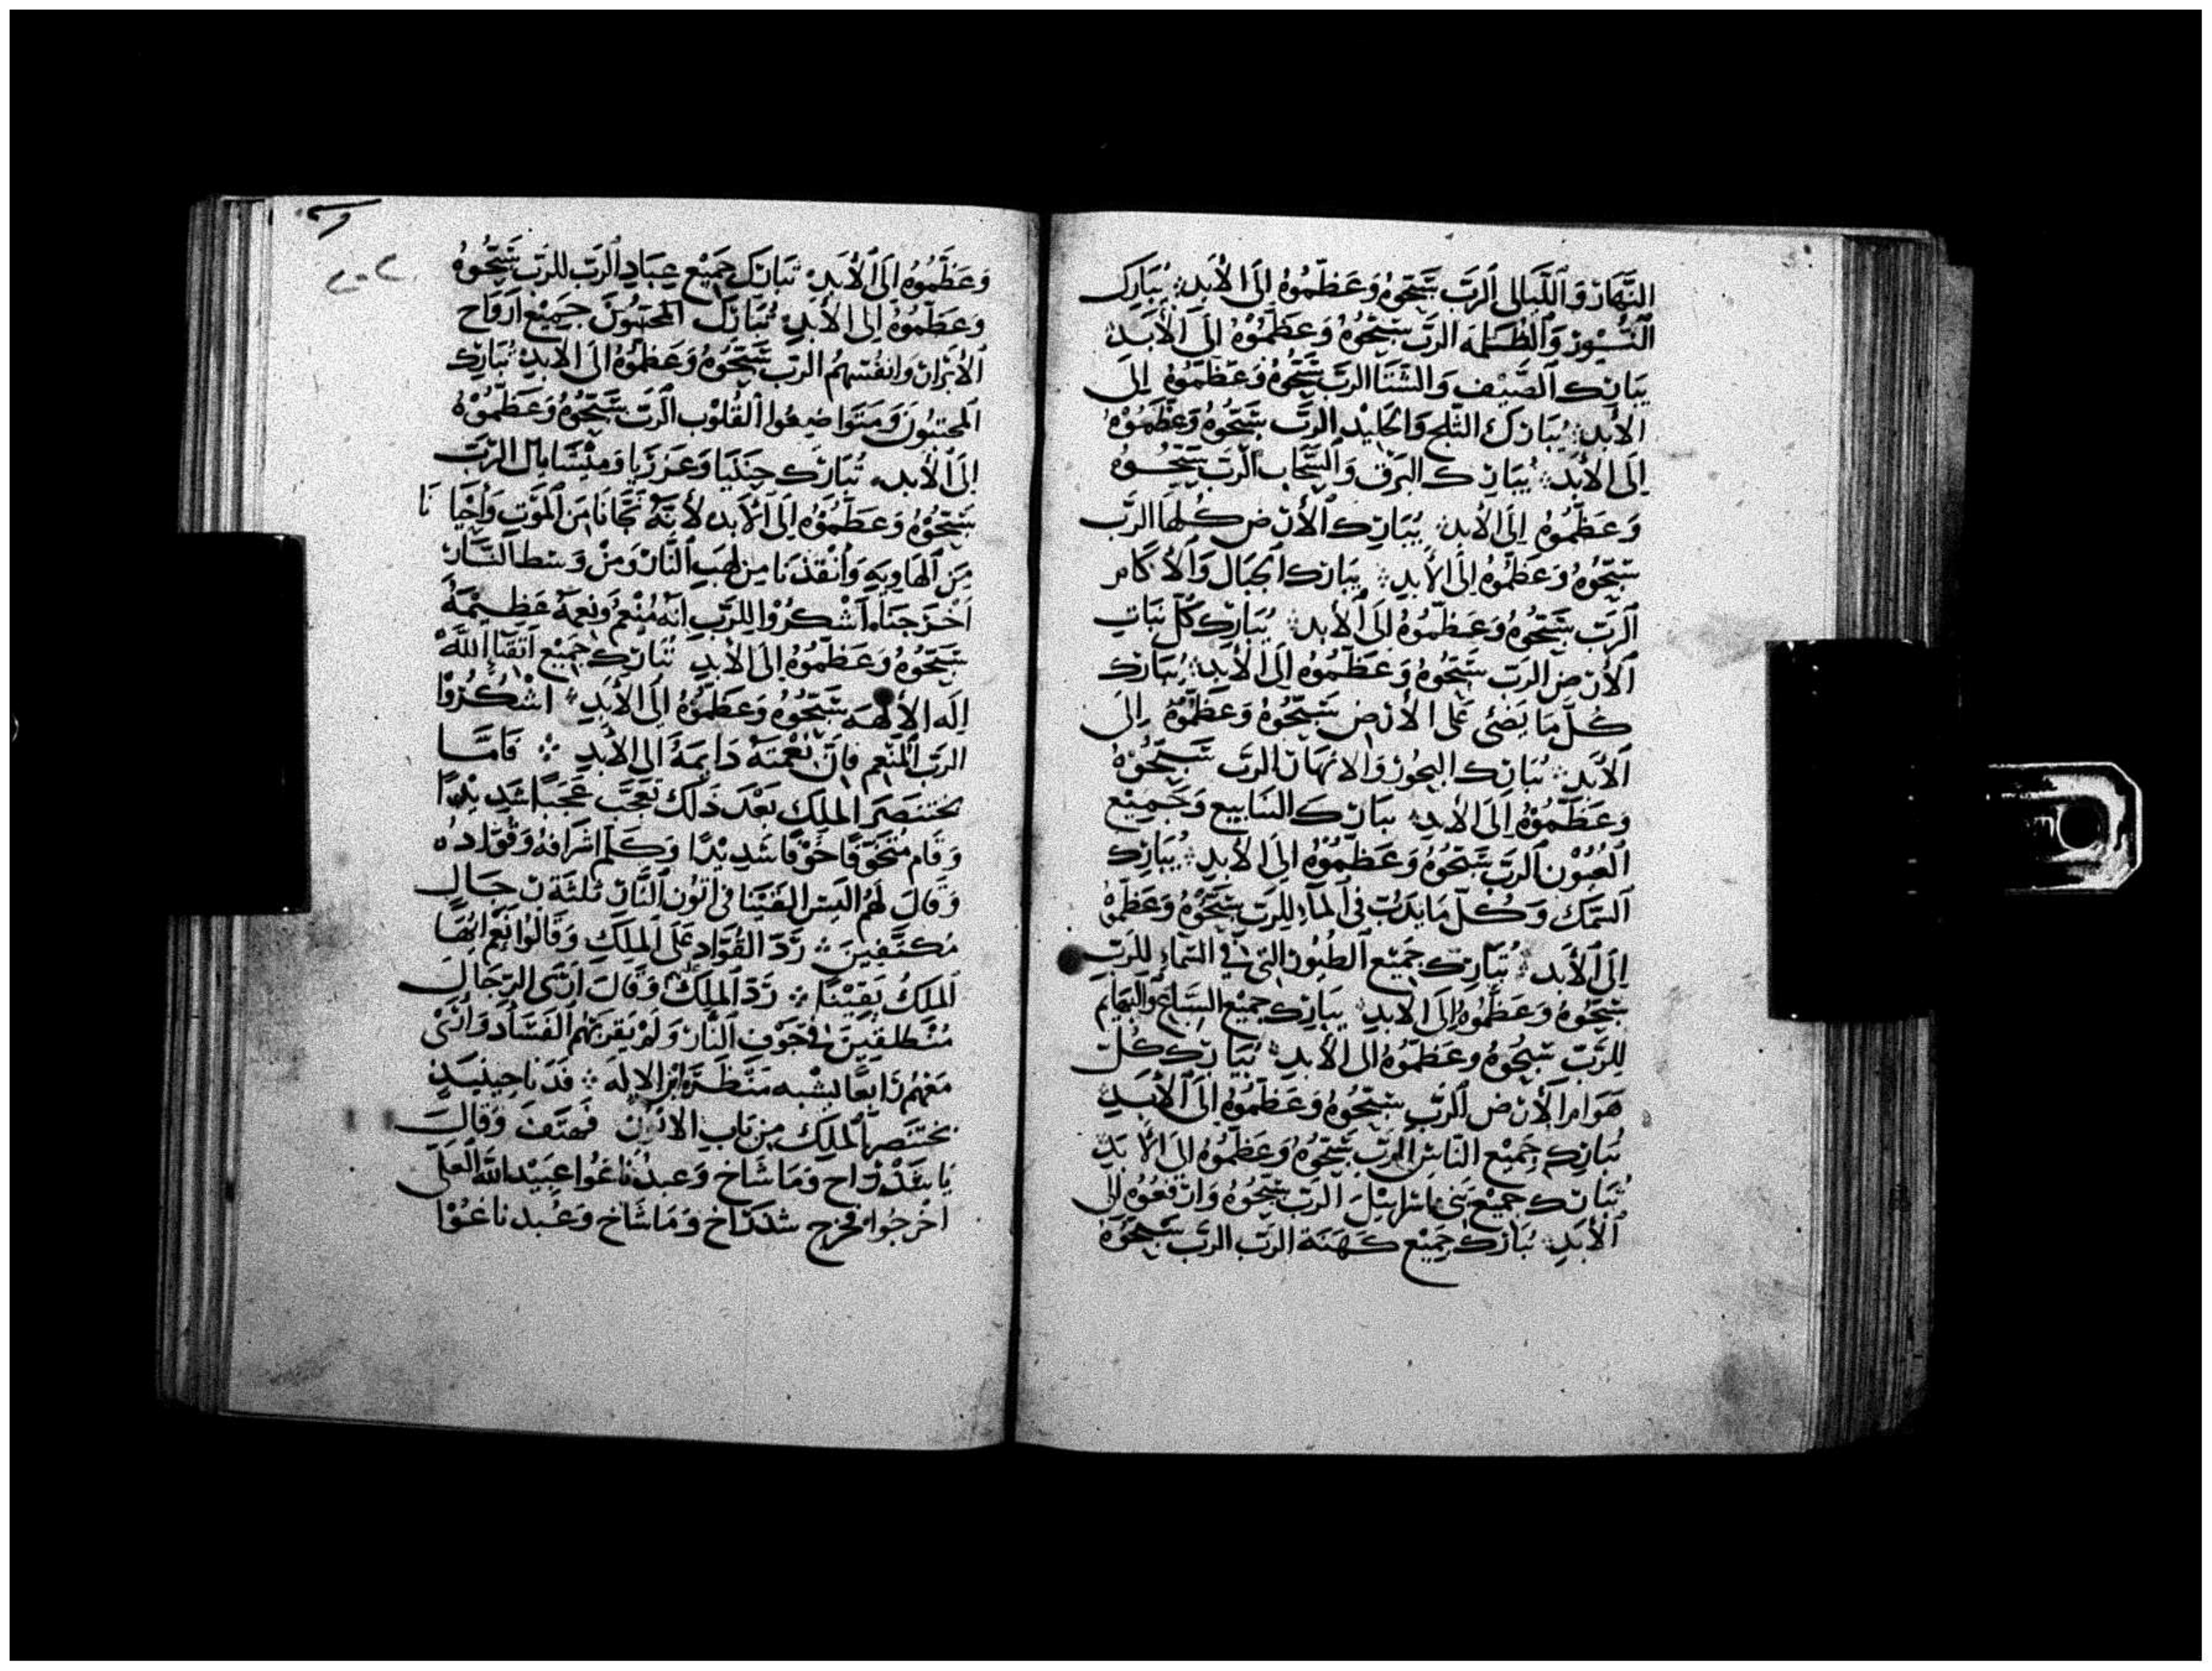 النَّهَار وَاللَّيَالِي الرَّبَّ سَبِّحُوهُ وَعَظِّمُوهُ إِلَى الأَبَدِ: يُبَارِكُ
النُّورُ وَالظُّلمَه الرَّبَّ سَبِّحُوهُ وَعَظِّمُوْهُ إِلَى الأَبَدِ
يبَارك الصَّيْف وَالشِّتَا الرَّبَّ سَبِّحُوهُ وَعَظِّمُوهُ إِلَى
الأَبَدِ: يُبَارَك الثَّلج وَالجَلِيْد الرَّبَّ سَبِّحُوهُ وَعَظِّمُوْهُ
إِلَى الأَبَدِ: يُبَارِك البَرق وَالسَّحَاب الرَّبَّ سَبِّحُوهُ
وَعَظِّمُوهُ إِلَى الأَبدِ: يُبَارِك الأَرض كُلّهَا الرَّب
سَبِّحُوهُ وَعَظِّمُوهُ إِلَى الأَبدِ: يبَارك الجبَال وَالأَكَام
الرَّبّ سَبِّحُوهُ وَعَظِّمُوهُ إِلَى الأَبدِ: يُبَارِك كُلّ نبَاتِ
الأَرضِ الرَبّ سَبِّحُوهُ وَعَظِّمُوهُ إِلَى الأَبدِ: يُبَارك
كُلّ مَا يَضئ عَلَى الأَرضِ سَبِّحُوهُ وَعَظِّمُوْهُ إِلَى
الأَبَدِ: يُبَارِك البحُورُ وَالانهَار الرَبّ سَبِّحُوْهُ
وَعَظِّمُوْهُ إِلَى الأَبدِ: يبَارك الينَابيع وَجَمِيْع
العُيُوْن الرَبّ سَبِّحُوهُ وَعَظِّمُوْهُ الَى الأَبدِ: يُبَارِك
السَّمَك وَكُلّ مَا يَدِبّ فى المَآءِ للرَبّ سَبِّحُوْهُ وَعَظِّمُوْهُ
إِلَى الأَبَد: يُبَارِك جَمِيْع الطيُور التى فِي السَّمَاءِ للرَبّ
سَبِّحُوهُ وَعَظِّمُوهُ إِلَى الأَبدِ: يبَارِك جَمِيْع السّبَاع وَالبَهَايم
للرَّبّ سَبِّحُوهُ وَعَظِّمُوهُ الى الأَبدِ: يُبَارِك كُلّ
هَوَامّ الأَرْضِ الرَبّ سَبِّحُوهُ وَعَظِّمُوهُ الَى الأَبَدِ
يُبَارِك جَمِيْع النَّاسِ الرَّبّ سَبِّحُوهُ وَعَظِّمُوهُ الى الأَبَدِ
يُبَارك جمِيْع بَنى اسرَايئلَ الرَّب سَبِّحُوهُ وَارْفَعُوْهُ الى
الأَبَدِ: يُبَارَك جَمِيْع كَهَنَة الرَبّ الرَبّ سَبِّحُوْهُ
وَعَظِّمُوهُ إلَى الأَبَدِ: تبَارَك جَمِيْع عِبَادِ الرَّب للرَبّ سَبِّحُوهُ
وَعَظِّمُوهُ إِلَى الأَبدِ: تُبَارَك المحبّوُنَ جَمِيْع اروَاح
الأَبْرَار وَانفُسهم الرَب سَبِّحُوهُ وَعَظِّمُوهُ الَى الأَبدِ: تُبَارِك
المحبّون وَمتَواضِعُوا القُلُوْب الرَبّ سَبِّحُوهُ وَعَظِّمُوْهُ
إلَى الأَبدِ: تُبَارَك حننيَا وَعَزرَيا وَمِيْشَايل الرَّبّ
سَبِّحُوْهُ وَعَظِّمُوْهُ إِلَى الأَبدِ لأنَّهُ نَجَّانَا مِن المَوْتِ وَأَحيَا نَا
مِن الهَاوِيَهِ وَأَنْقَذنَا من لهَبِ النَّار وَمن وَسَط النَّار
أَخْرَجنَا اشْكُرُوْا للرَبّ انَّهُ مُنْعِمٌ وَنِعمَةٌ عَظِيْمَةٌ
سَبِّحُوهُ وَعَظِّمُوهُ إِلَى الأَبدِ تُبَارِك جَمِيْع اتقيَا اللَّهْ
الَه الالهَه سَبِّحُوهُ وَعَظِّمُوهُ الى الأَبَدِ: اشْكُرُوْا
الرَبّ المنْعِم فانّ نِعْمتهُ دَايمَةُ الى الأَبدِ ∴ فَامَّا
بختنصَر المَلِك بَعْدَ ذَلك تعَجَّب عَجَبًا شدِيْدًا
وَقَام متخَوّفًا خَوْفًا شَدِيْدًا وَكَلّم اشرَافهُ وَقُوّادهُ
وَقَالَ لَهُم اليسَ القيْنَا فى اتُون النَّار ثلثَة رجَال
مُكتّفِينَ: رَدّ القُوّاد عَلَى المَلِكِ وَقَالُوا نَعَم ايّهَا
المَلكُ يَقِيْنًا ∴ رَدّ المَلِكُ وَقَالَ ارَى الرّجَال
مُنْطلِقِيْنَ فى جَوْفِ النَّار وَلَمْ يقرَبهم الفَسَاد وَارَى
مَعَهُم رَابعًا يشْبه مَنظَرَهُ ابن الالَه ∴ فَدَنا حِيْنيذٍ
بختنصَر المَلِك مِن بَاب الاتُون فَهتَفَ وَقالَ
يَا شدرَاخ وَمَاشَاخ وَعبدنَاغُوا عَبِيْد اللَّه العَلى
اخْرجُوا فخرج شدرَاخ وَمَاشَاخ وَعَبدناغُوْا